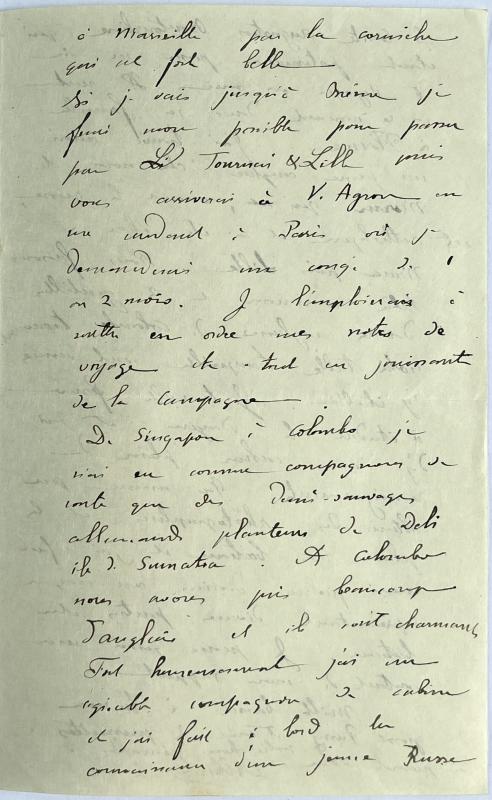 à Marseille par la corniche
qui est fort belle
Si je vais jusqu'à Brême je
ferai mon possible pour passer
par Tournai & Lille puis
vous arriverai à V. Agron en
me rendant à Paris où je
demanderais un congé de 1
ou 2 mois. Je l'emploierais à
mettre en ordre mes notes de
voyage etc tout en jouissant
de la campagne
De Singapour à Colombo je
n'ai eu comme compagnons de
route que des demi-sauvages
allemands planteurs de Deli
île de Sumatra. A Colombo
nous avons pris beaucoup
d'anglais et ils sont charmants
Fort heureusement j'ai un
agréable compagnon de cabine
et j'ai fait à bord la
connaissance d'un jeune Russe